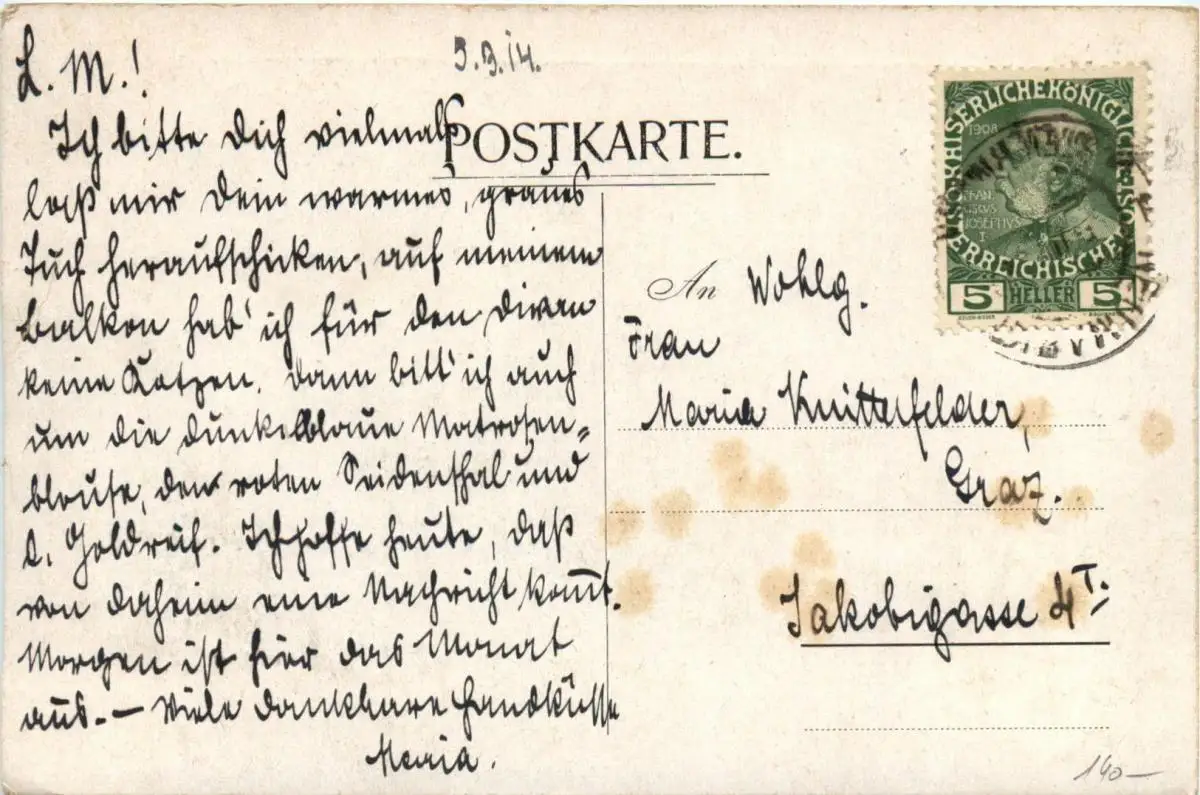 3.3.14.
L. M.!
Ich bitte Dich vielmals
laß mir Dein warmes, graues
Tuch heraufschicken, auf meinem
Balkon hab' ich für den Divan
keine Kotzen. Dann bitt' ich auch
um die dunkelblaue Matrosen=
blouse, den roten Seidenshal und
d. Goldreif. Ich hoffe heute, daß
von daheim eine Nachricht komt.
Morgen ist für das Monat
aus. — Viele dankbare Handküsse
Maria.
POSTKARTE.
An Wohlg.
Frau
Maria Knittelfelder,
Graz.
Jakobigasse 4 I.
K.K. KAISERLICHEKÖNIGLICHE
ÖSTERREICHISCHE
1908
FRAN
ISCVS
JOSEPHVS
I
5 HELLER 5
140—